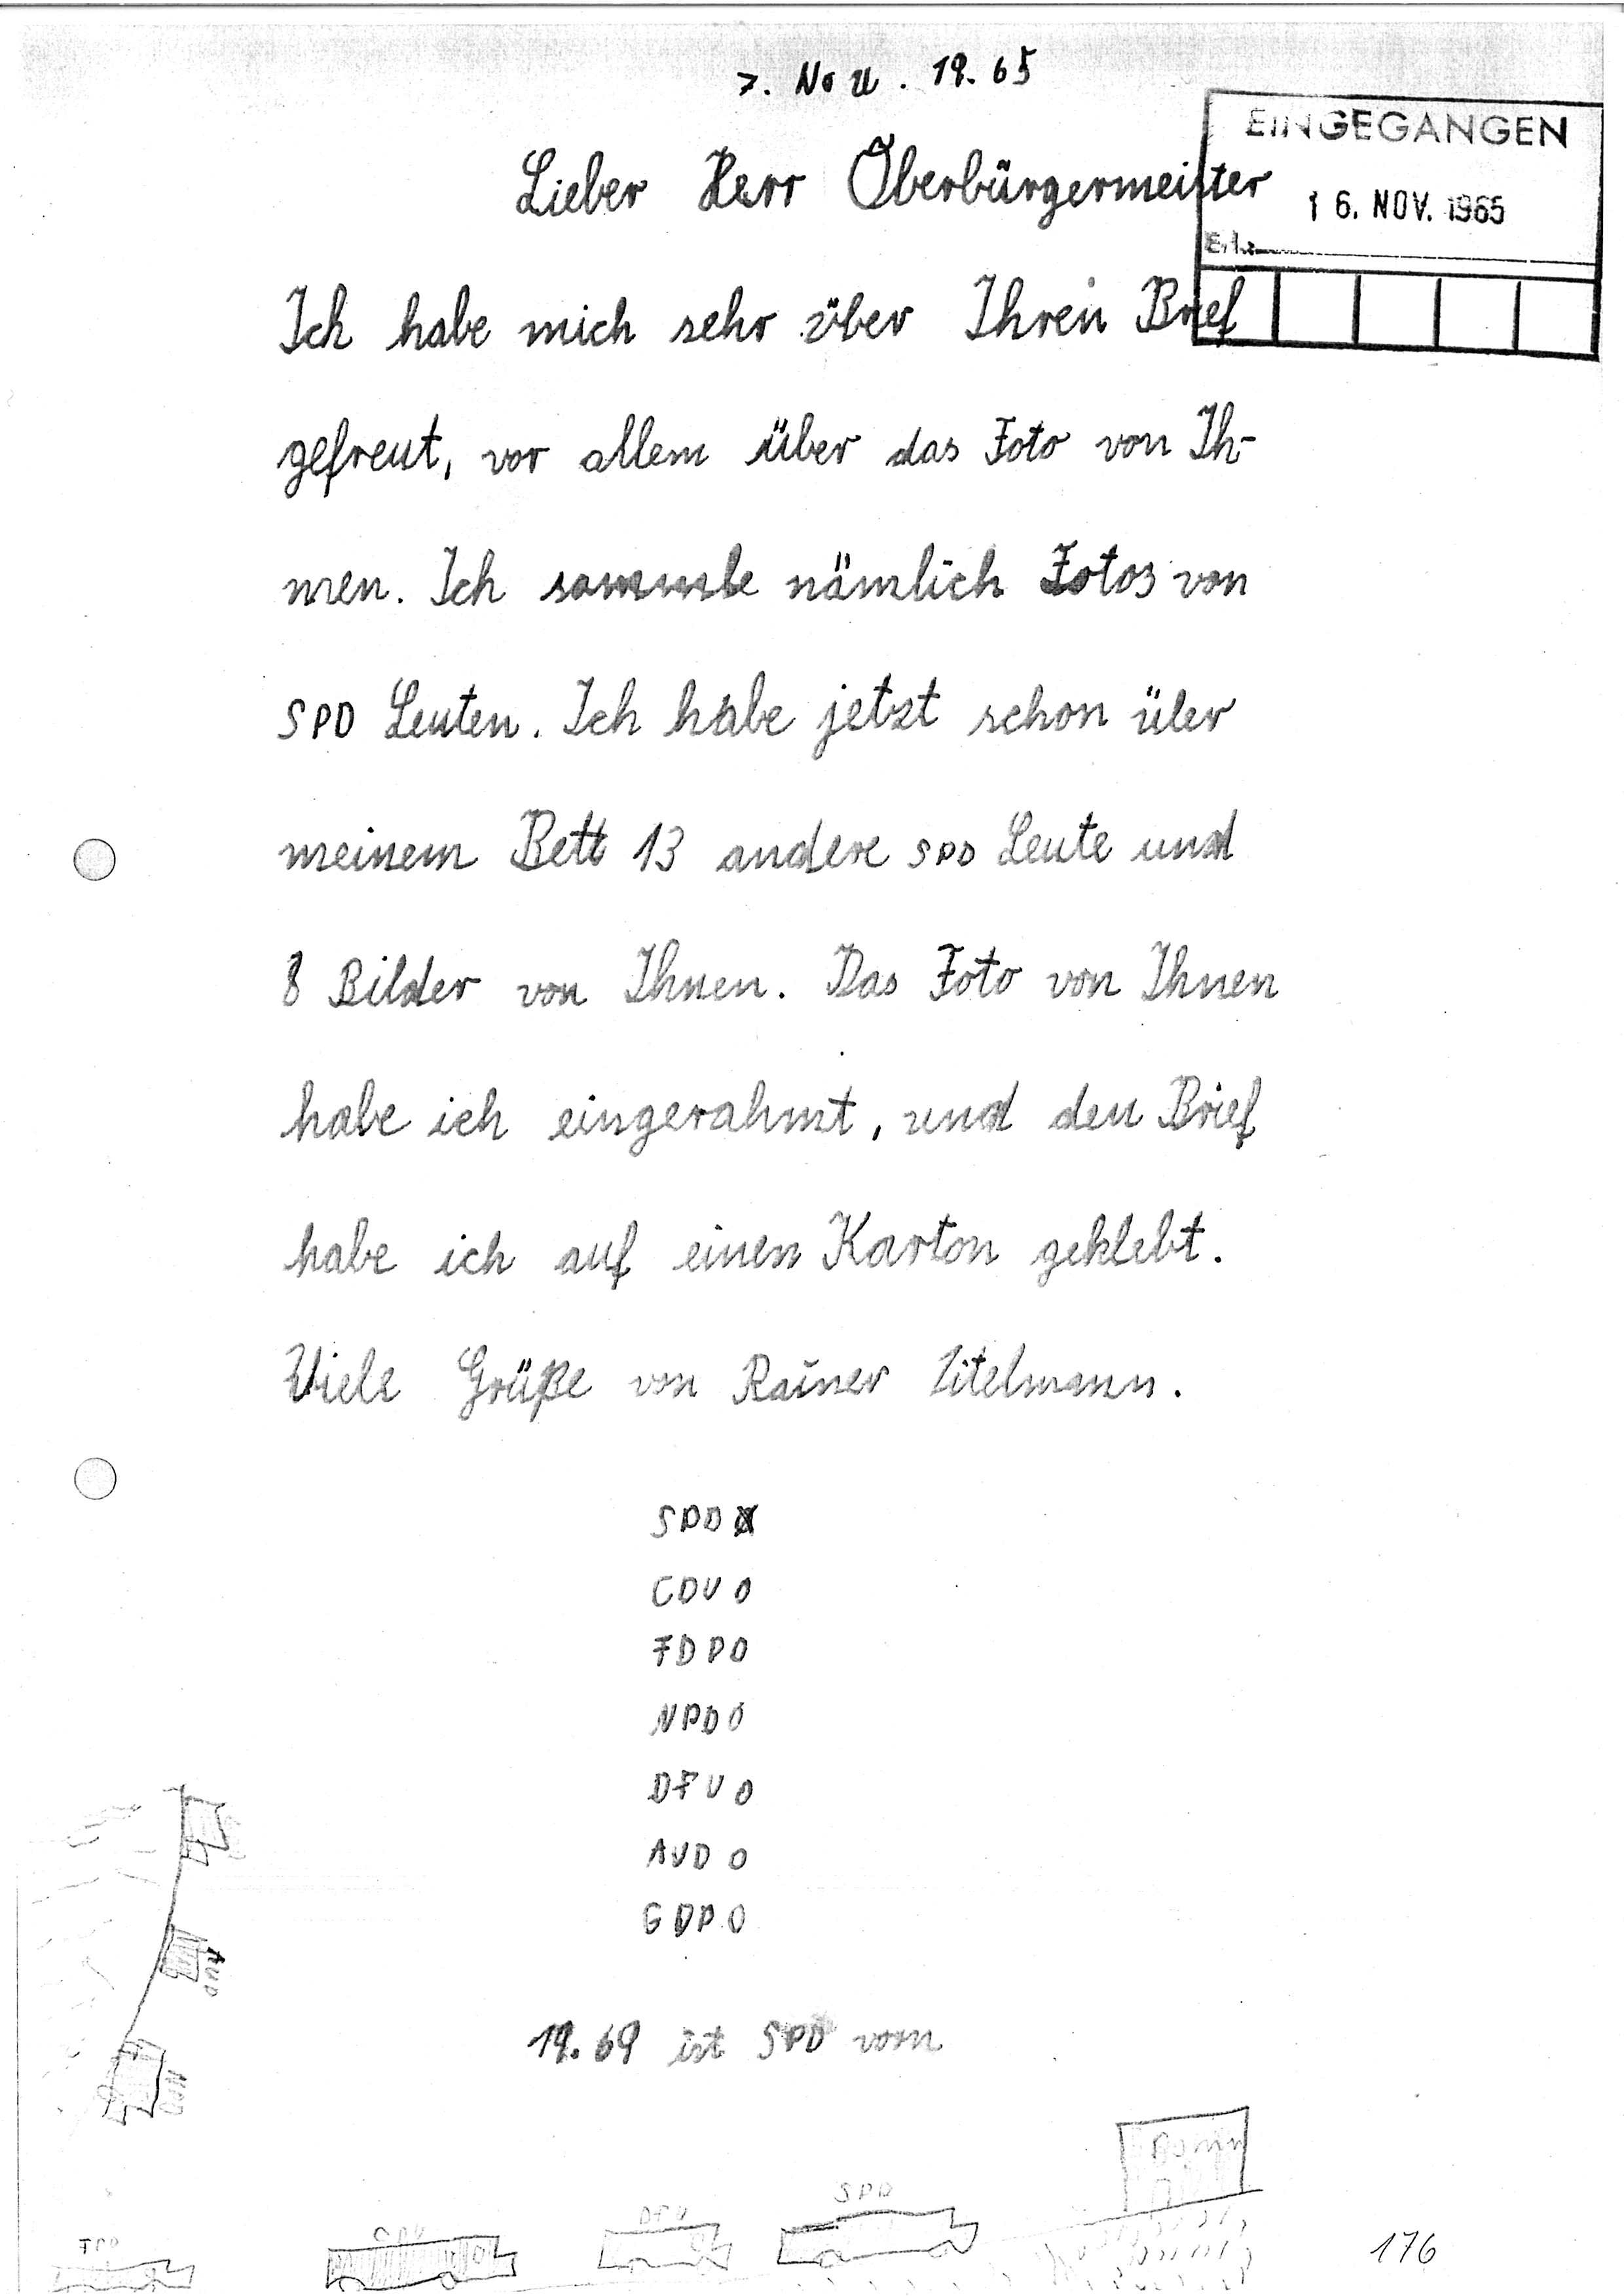 7. Nov. 19.65
EINGEGANGEN
16. NOV. 1965
Erl.:
Lieber Herr Oberbürgermeister
Ich habe mich sehr über Ihren Brief
gefreut, vor allem über das Foto von Ih-
nen. Ich sammle nämlich Fotos von
SPD Leuten. Ich habe jetzt schon über
meinem Bett 13 andere SPD Leute und
8 Bilder von Ihnen. Das Foto von Ihnen
habe ich eingerahmt, und den Brief
habe ich auf einen Karton geklebt.
Viele Grüße von Rainer Zitelmann.
SPD
CDU O
FDP O
NPD O
DFU O
AUD O
GDP O
19.69 ist SPD vorn
AUD
NPD
Bonn
SPD
DFU
CDU
FDP
176